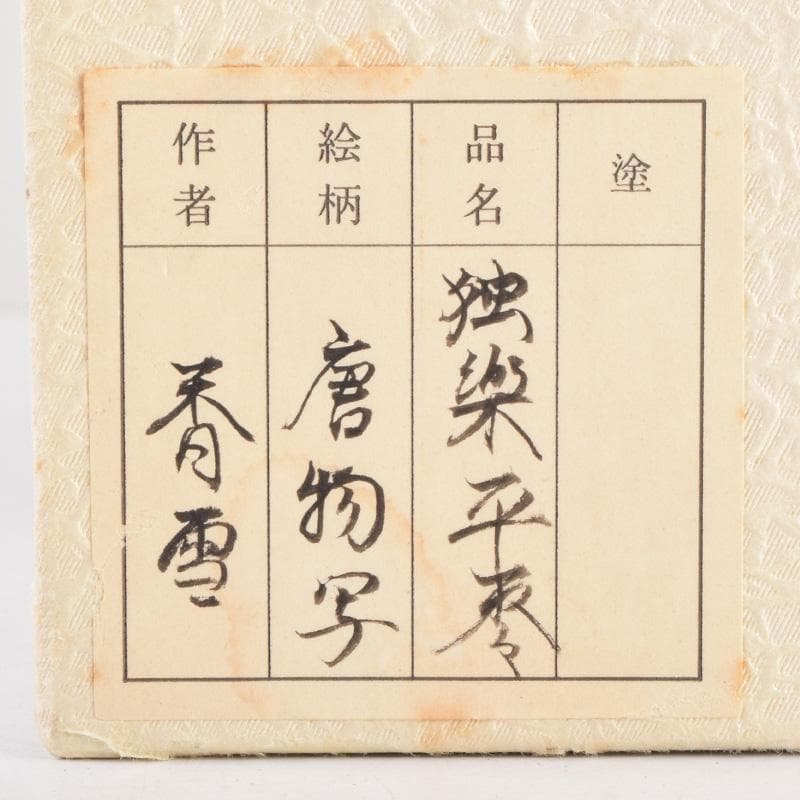 塗
品名
独楽平棗
絵柄
唐物写
作者
春雪